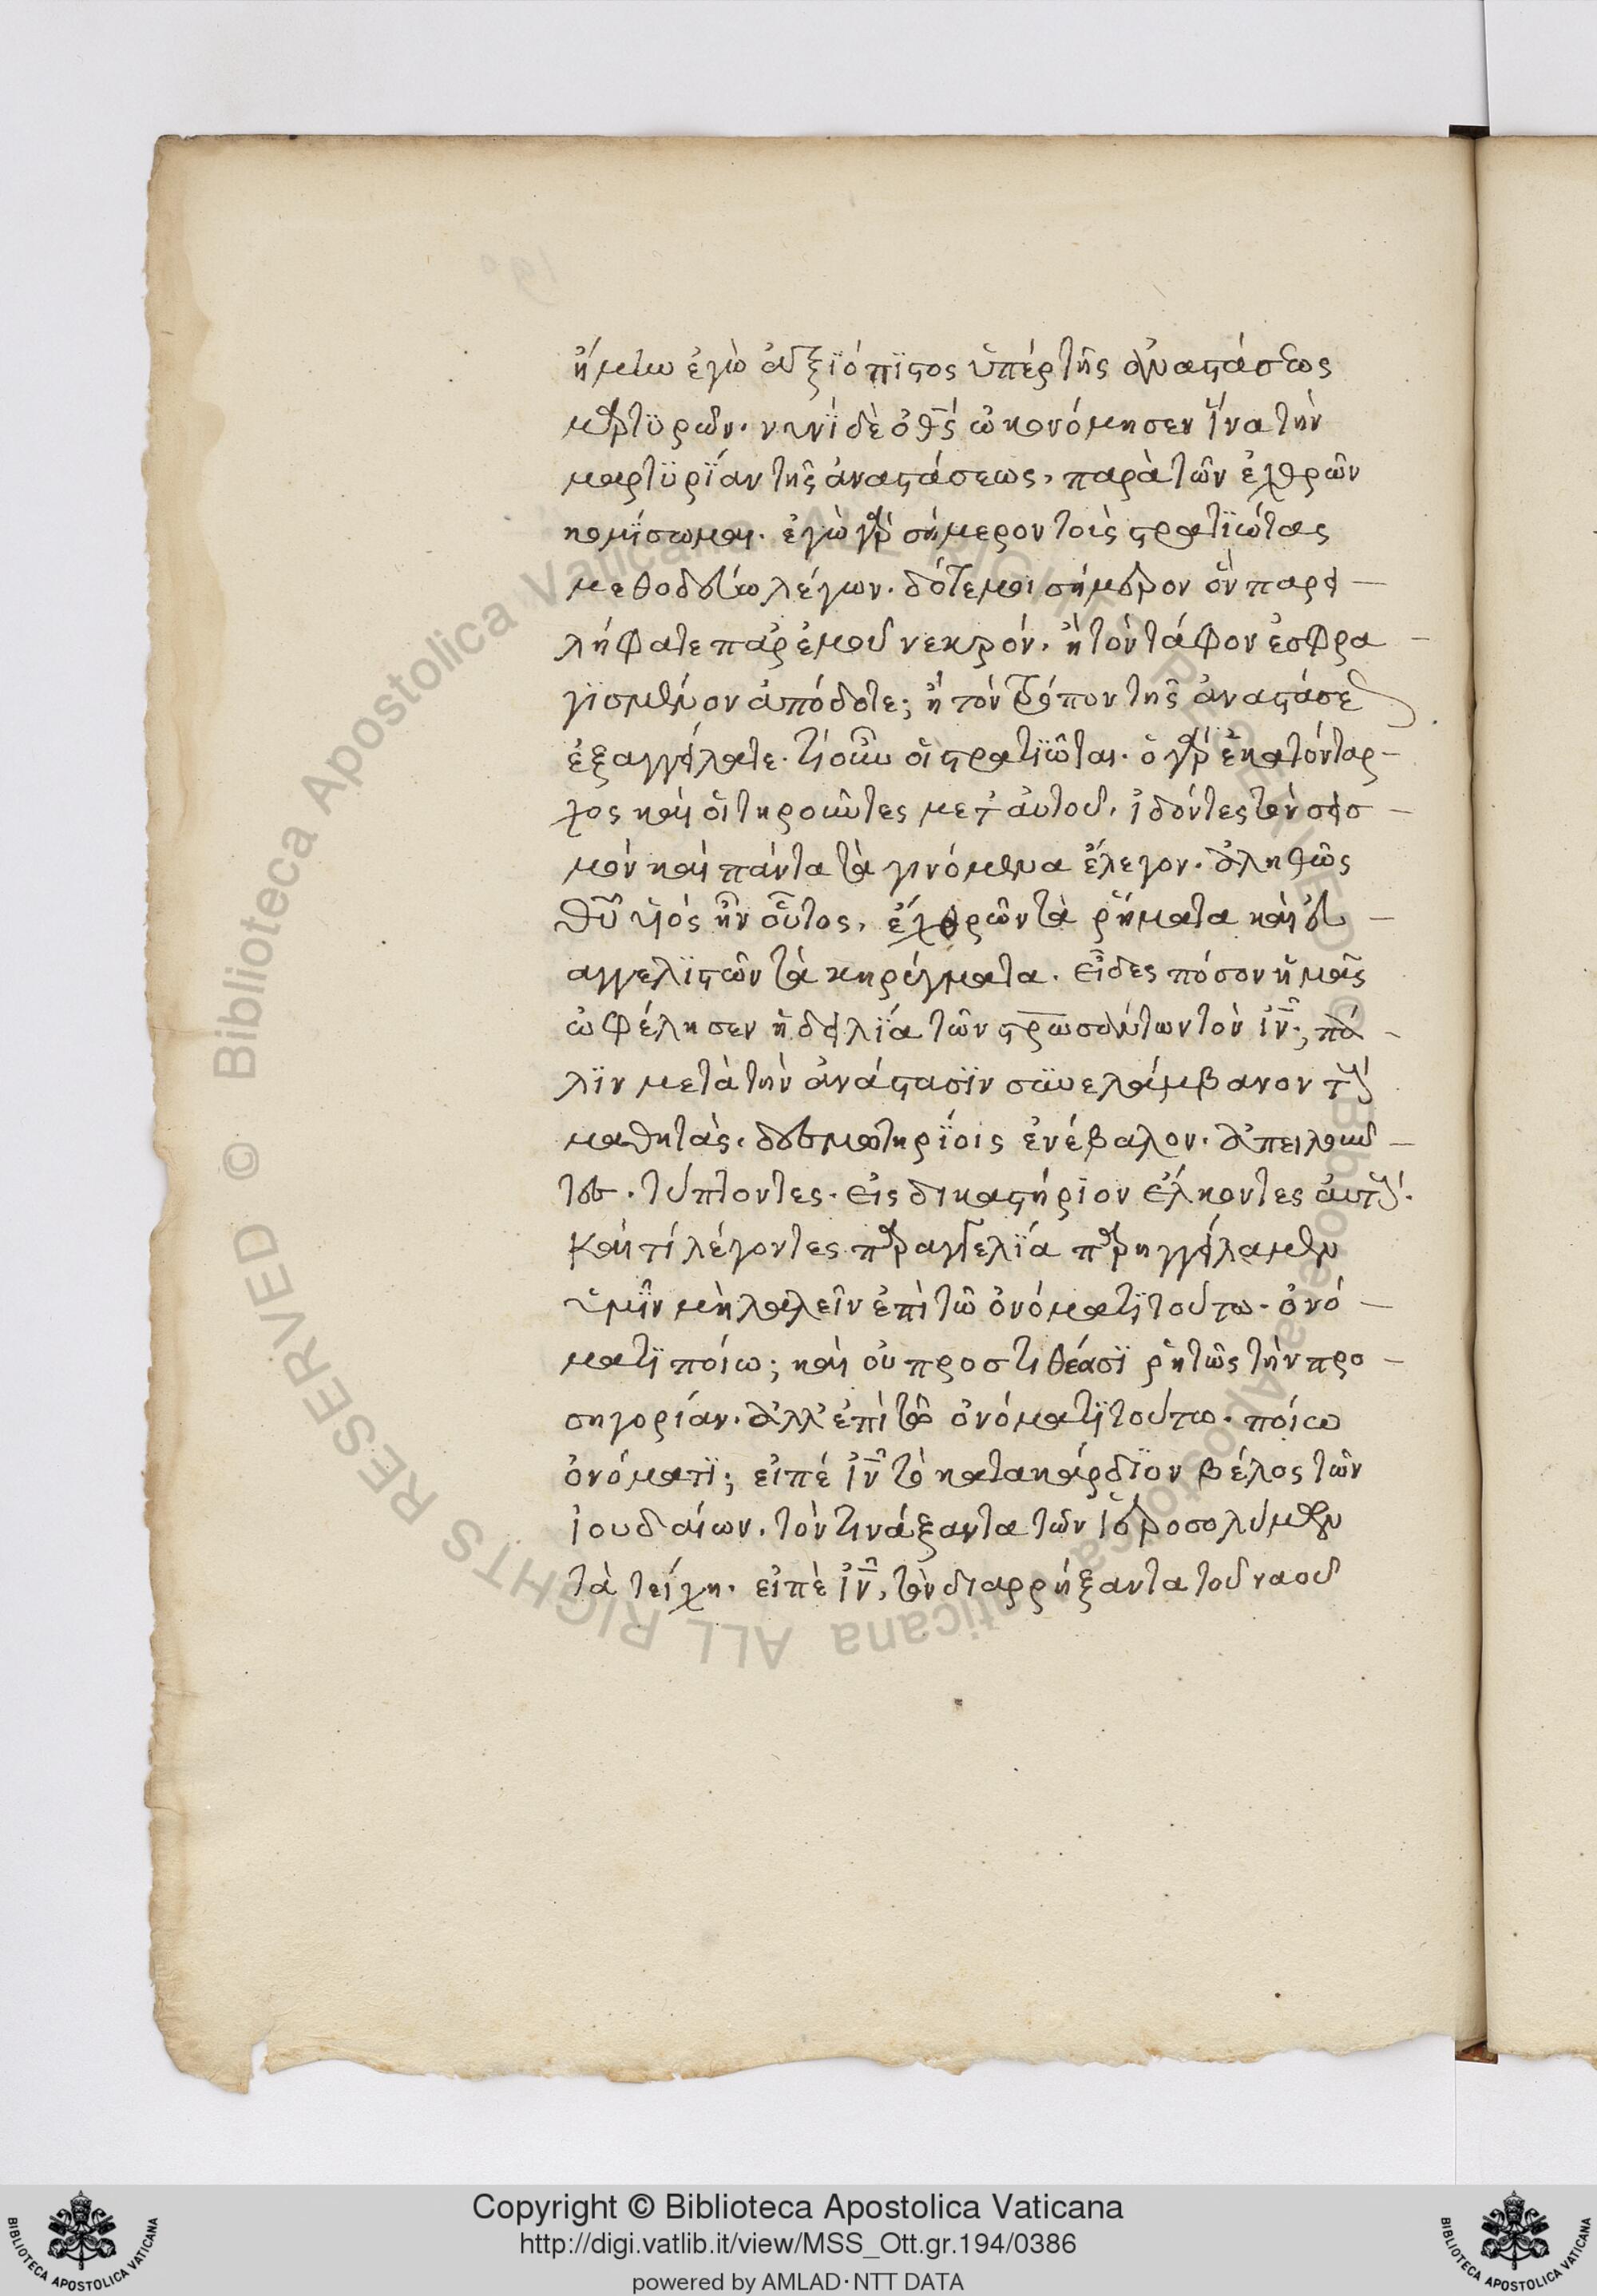 ἤμην ἐγὼ ἀξϊόπϊστος ὑπὲρ τῆς ἀναστάσεως
μαρτϋρῶν. νυνῒ δὲ ὁ θς ὠκονόμησεν ἵνα τὴν
μαρτϋρΐαν τῆς ἀναστάσεως, παρὰ τῶν ἐχθρῶν
κομΐσωμαι. ἐγὼ γὰρ σήμερον τοὺς στρατϊώτας
μεθοδεύω λέγων. δότε μοι σήμερον ὃν παρει
λήφατε παρ ἐμοῦ νεκρόν. ἢ τὸν τάφον ἐσφρα
γϊσμένον ἀπόδοτε; ἢ τὸν τρόπον τῆς ἀναστάσεως
ἐξαγγείλατε. τί οὖν οἱ στρατϊῶται. ὁ γὰρ ἑκατόνταρ
χος καὶ οἱ τηροῦντες μετ αὐτοῦ. ἰδόντες τὸν σεισ
μὸν καὶ πάντα τὰ γινόμενα ἔλεγον. ἀληθῶς
θυ υἱὸς ἦν οὗτος, ἐχθρῶν τὰ ῥήματα καὶ εὐ
αγγελϊστῶν τὰ κηρύγματα. εἶδες πόσον ἡμᾶς
ὠφέλησεν ἡ δειλΐα τῶν στρωσάντων τὸν ἰν; πά
λϊν μετὰ τὴν ἀνάστασϊν συνελάμβανον τοὺς
μαθητάς. δεσμωτηρΐοις ἐνέβαλον. ἀπειλοῦν
τες. τύπτοντες. εἰς δικαστήρϊον ἕλκοντες αὐτούς.
καὶ τί λέγοντες παραγγελΐα παρηγγείλαμεν
ὑμῖν μὴ λαλεῖν ἐπὶ τῶ ὀνόματϊ τούτω. ὀνό
ματϊ ποίω; καὶ οὐ προστιθέασϊ ῥητῶς τὴν προ
σηγορίαν. ἀλλ ἐπὶ τῶ ὀνόματϊ τούτω. ποίω
ὀνόματϊ; εἰπέ ἰν τὸ κατακάρδϊον βέλος τῶν
ἰουδαίων. τὸν τινάξαντα τῶν ἱεροσολύμων
τὰ τείχη. εἰπὲ ἰν, τὸν διαρρήξαντα τοῦ ναοῦ
Copyright © Biblioteca Apostolica Vaticana
http://digi.vatlib.it/view/MSS_Ott.gr.194/0386
powered by AMLAD·NTT DATA
BIBLIOTECA APOSTOLICA VATICANA
BIBLIOTECA APOSTOLICA VATICANA
© Biblioteca Apostolica Vaticana ALL RIGHTS RESERVED
© Biblioteca Apostolica Vaticana ALL RIGHTS RESERVED